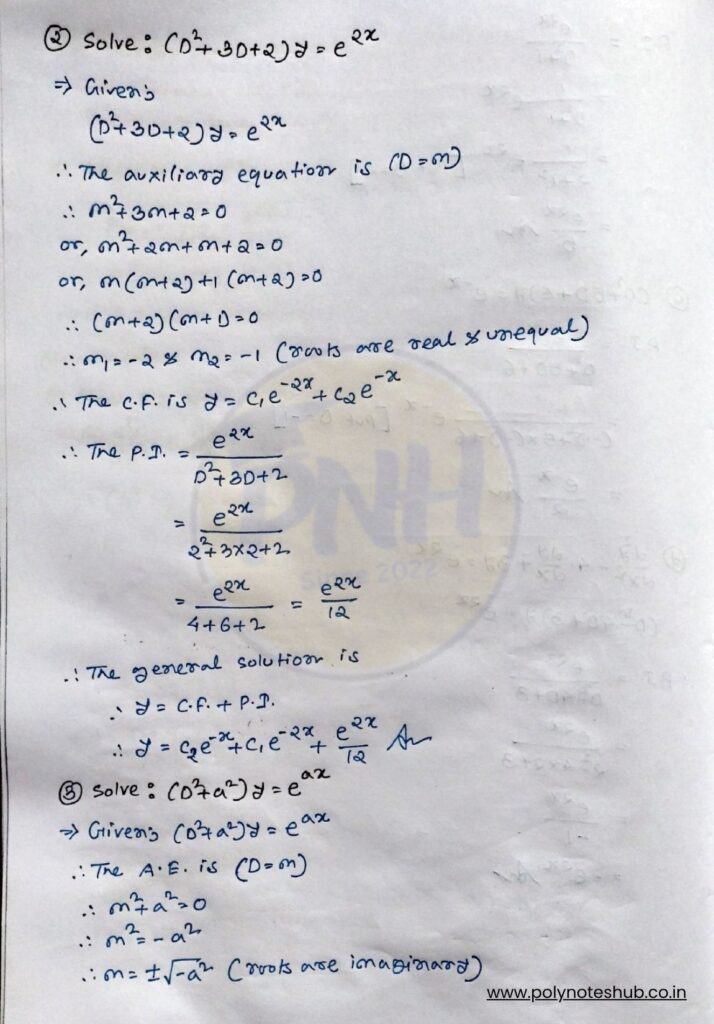 ② Solve : (D²+3D+2) y = e^2x
⇒ Given :
(D²+3D+2) y = e^2x
∴ The auxiliary equation is (D=m)
∴ m²+3m+2=0
or, m²+2m+m+2=0
or, m(m+2)+1(m+2)=0
∴ (m+2)(m+1)=0
∴ m₁=-2 & m₂=-1 (roots are real & unequal)
∴ The C.F. is y = c₁e^-2x + c₂e^-x
∴ The P.I. = e^2x / D²+3D+2
= e^2x / 2²+3×2+2
= e^2x / 4+6+2 = e^2x / 12
∴ The general solution is
∴ y = C.F. + P.I.
∴ y = c₂e^-x + c₁e^-2x + e^2x / 12 An
③ Solve : (D²+a²) y = e^ax
⇒ Given : (D²+a²) y = e^ax
∴ The A.E. is (D=m)
∴ m²+a²=0
∴ m²=-a²
∴ m=±√-a² (roots are imaginary)
PNH
Since 2022
www.polynoteshub.co.in